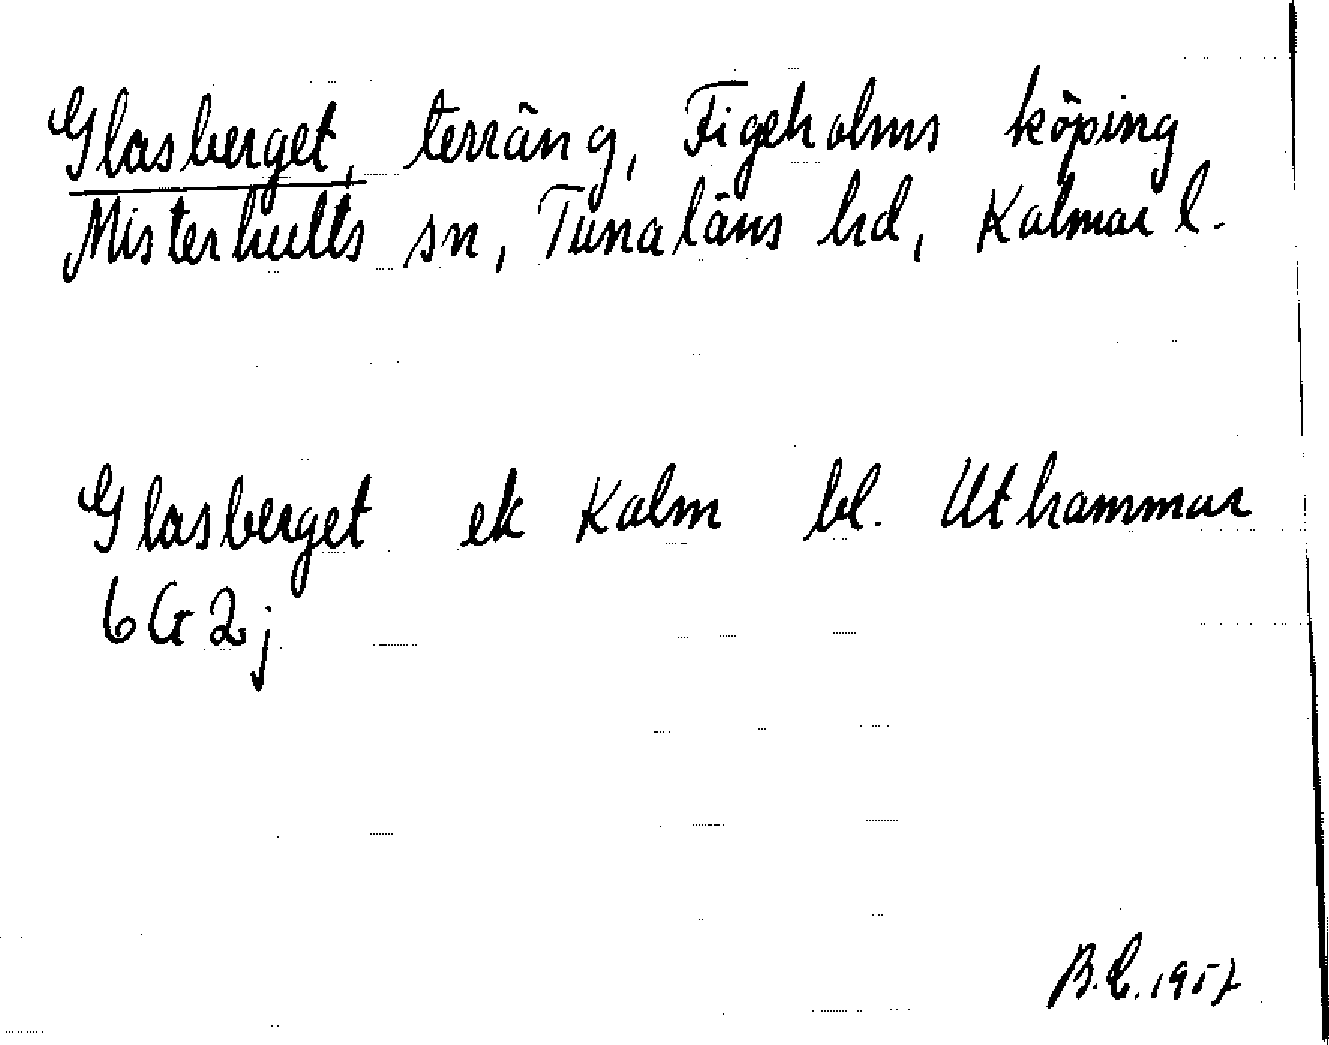 Glasberget, terräng, Figeholms köping
Misterhults sn, Tunaläns hd, Kalmar l.
Glasberget ek Kalm bl. Uthammar
6G2j
B.E. 1957